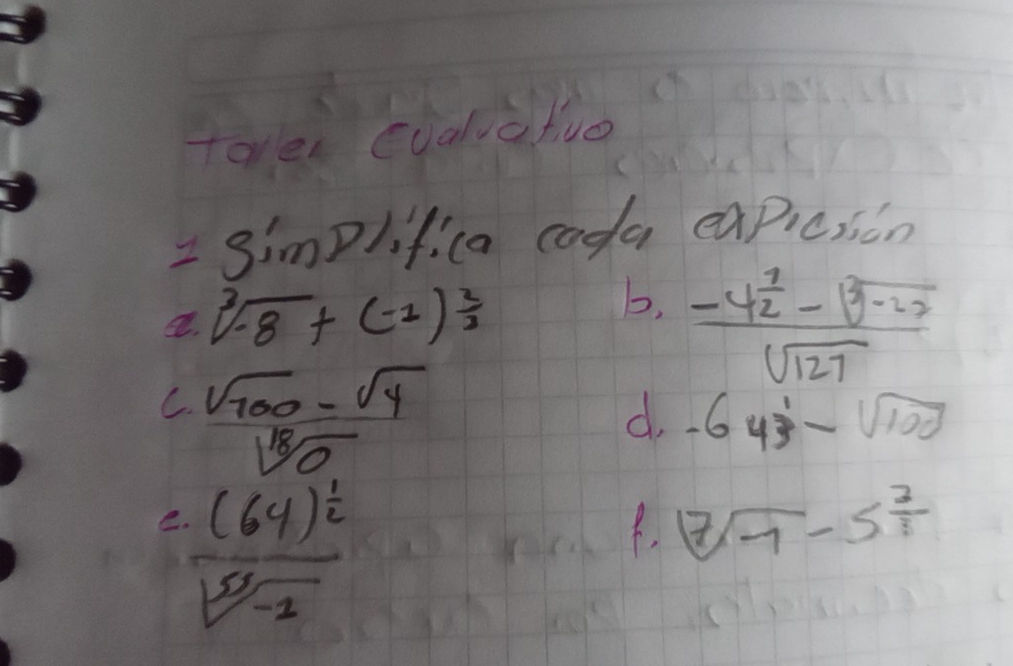 Taller Evaluativo
1 Simplifica cada expresión
a. ∛-8 + (-1)^(2/3) b. (-4^(1/2) - ∛-27) / √121
c. (√100 - √4) / ¹⁸√0 d. -64^(1/3) - √100
e. (64)^(1/2) / ⁵⁵√-1 f. ⁷√-1 - 5